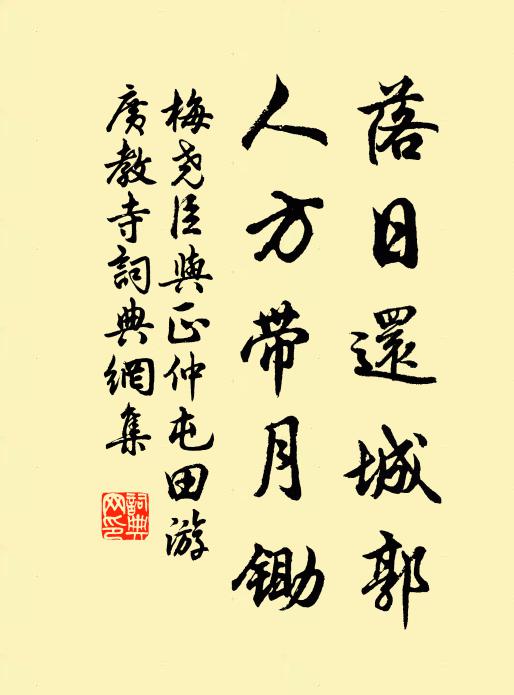 落日還城郭
人方帯月鋤
梅堯臣與正仲屯田游
廣教寺詞典網集
詞典
网印